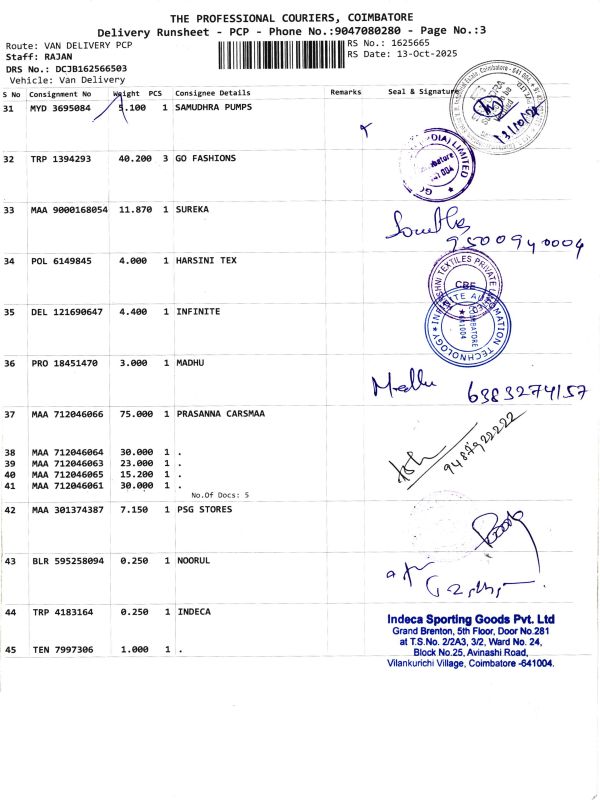 THE PROFESSIONAL COURIERS, COIMBATORE
Delivery Runsheet - PCP - Phone No.:9047080280 - Page No.:3
Route: VAN DELIVERY PCP
Staff: RAJAN
DRS No.: DCJB162566503
Vehicle: Van Delivery
RS No.: 1625665
RS Date: 13-Oct-2025
S No Consignment No Weight PCS Consignee Details Remarks Seal & Signature
31 MYD 3695084 5.100 1 SAMUDHRA PUMPS
13/10/25
32 TRP 1394293 40.200 3 GO FASHIONS
(INDIA) LIMITED
Coimbatore
641 004
33 MAA 9000168054 11.870 1 SUREKA
9500940004
34 POL 6149845 4.000 1 HARSINI TEX
TEXTILES PRIVATE
CBE
35 DEL 121690647 4.400 1 INFINITE
INFINITE AUTOMATION TECHNOLOGY
COIMBATORE
641004
36 PRO 18451470 3.000 1 MADHU
Madhu 6383274157
37 MAA 712046066 75.000 1 PRASANNA CARSMAA
9487922222
38 MAA 712046064 30.000 1 .
39 MAA 712046063 23.000 1 .
40 MAA 712046065 15.200 1 .
41 MAA 712046061 30.000 1 .
No.Of Docs: 5
42 MAA 301374387 7.150 1 PSG STORES
43 BLR 595258094 0.250 1 NOORUL
44 TRP 4183164 0.250 1 INDECA
Indeca Sporting Goods Pvt. Ltd
Grand Brenton, 5th Floor, Door No.281
at T.S.No. 2/2A3, 3/2, Ward No. 24,
Block No.25, Avinashi Road,
Vilankurichi Village, Coimbatore -641004.
45 TEN 7997306 1.000 1 .